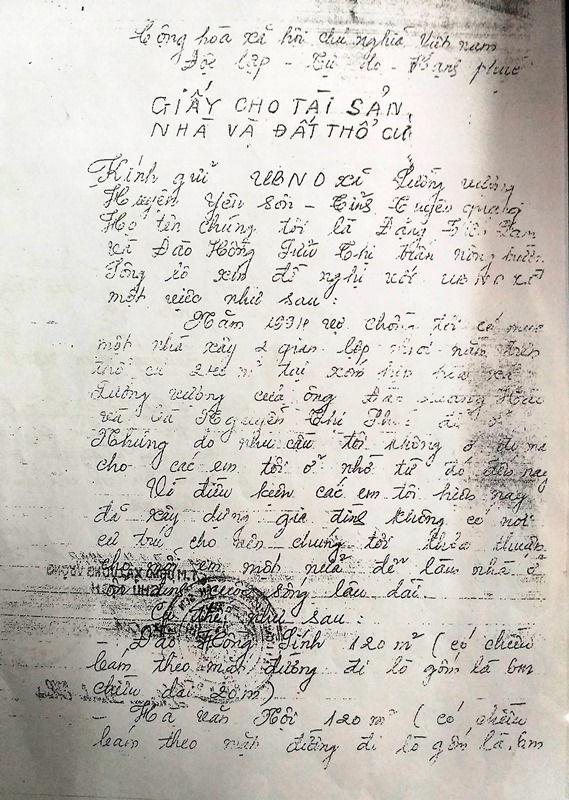 Cộng hòa xã hội chủ nghĩa Việt nam
Độc lập - Tự do - Hạnh phúc
GIẤY CHO TÀI SẢN,
NHÀ VÀ ĐẤT THỔ CƯ
Kính gửi UBND xã Lưỡng vượng
Huyện yên sơn - Tỉnh Tuyên quang
Họ tên chúng tôi là Đặng
và Đào Hồng
xin đề nghị với UBND xã
một việc như sau:
Năm vợ chồng tôi có mua
một nhà xây 2 gian lợp nằm trên
thổ cư 240 m² tại xóm xã
Lưỡng vượng của ông Đào
và bà Nguyễn Thị để ở
Nhưng do nhu cầu tôi không ở đó mà
cho các em tôi ở nhờ từ đó đến nay
Vì điều kiện các em tôi hiện nay
đã xây dựng gia đình không có nơi
cư trú cho nên chúng tôi thỏa thuận
cho mỗi em một nửa để làm nhà ở
ổn định cuộc sống lâu dài.
Cụ thể như sau:
- Đào Hồng Tính 120 m² (có chiều
bám theo mặt đường đi lò gốm là 6m
chiều dài 20m)
- Hà văn Hội 120 m² (có chiều
bám theo mặt đường đi lò gốm là 6m